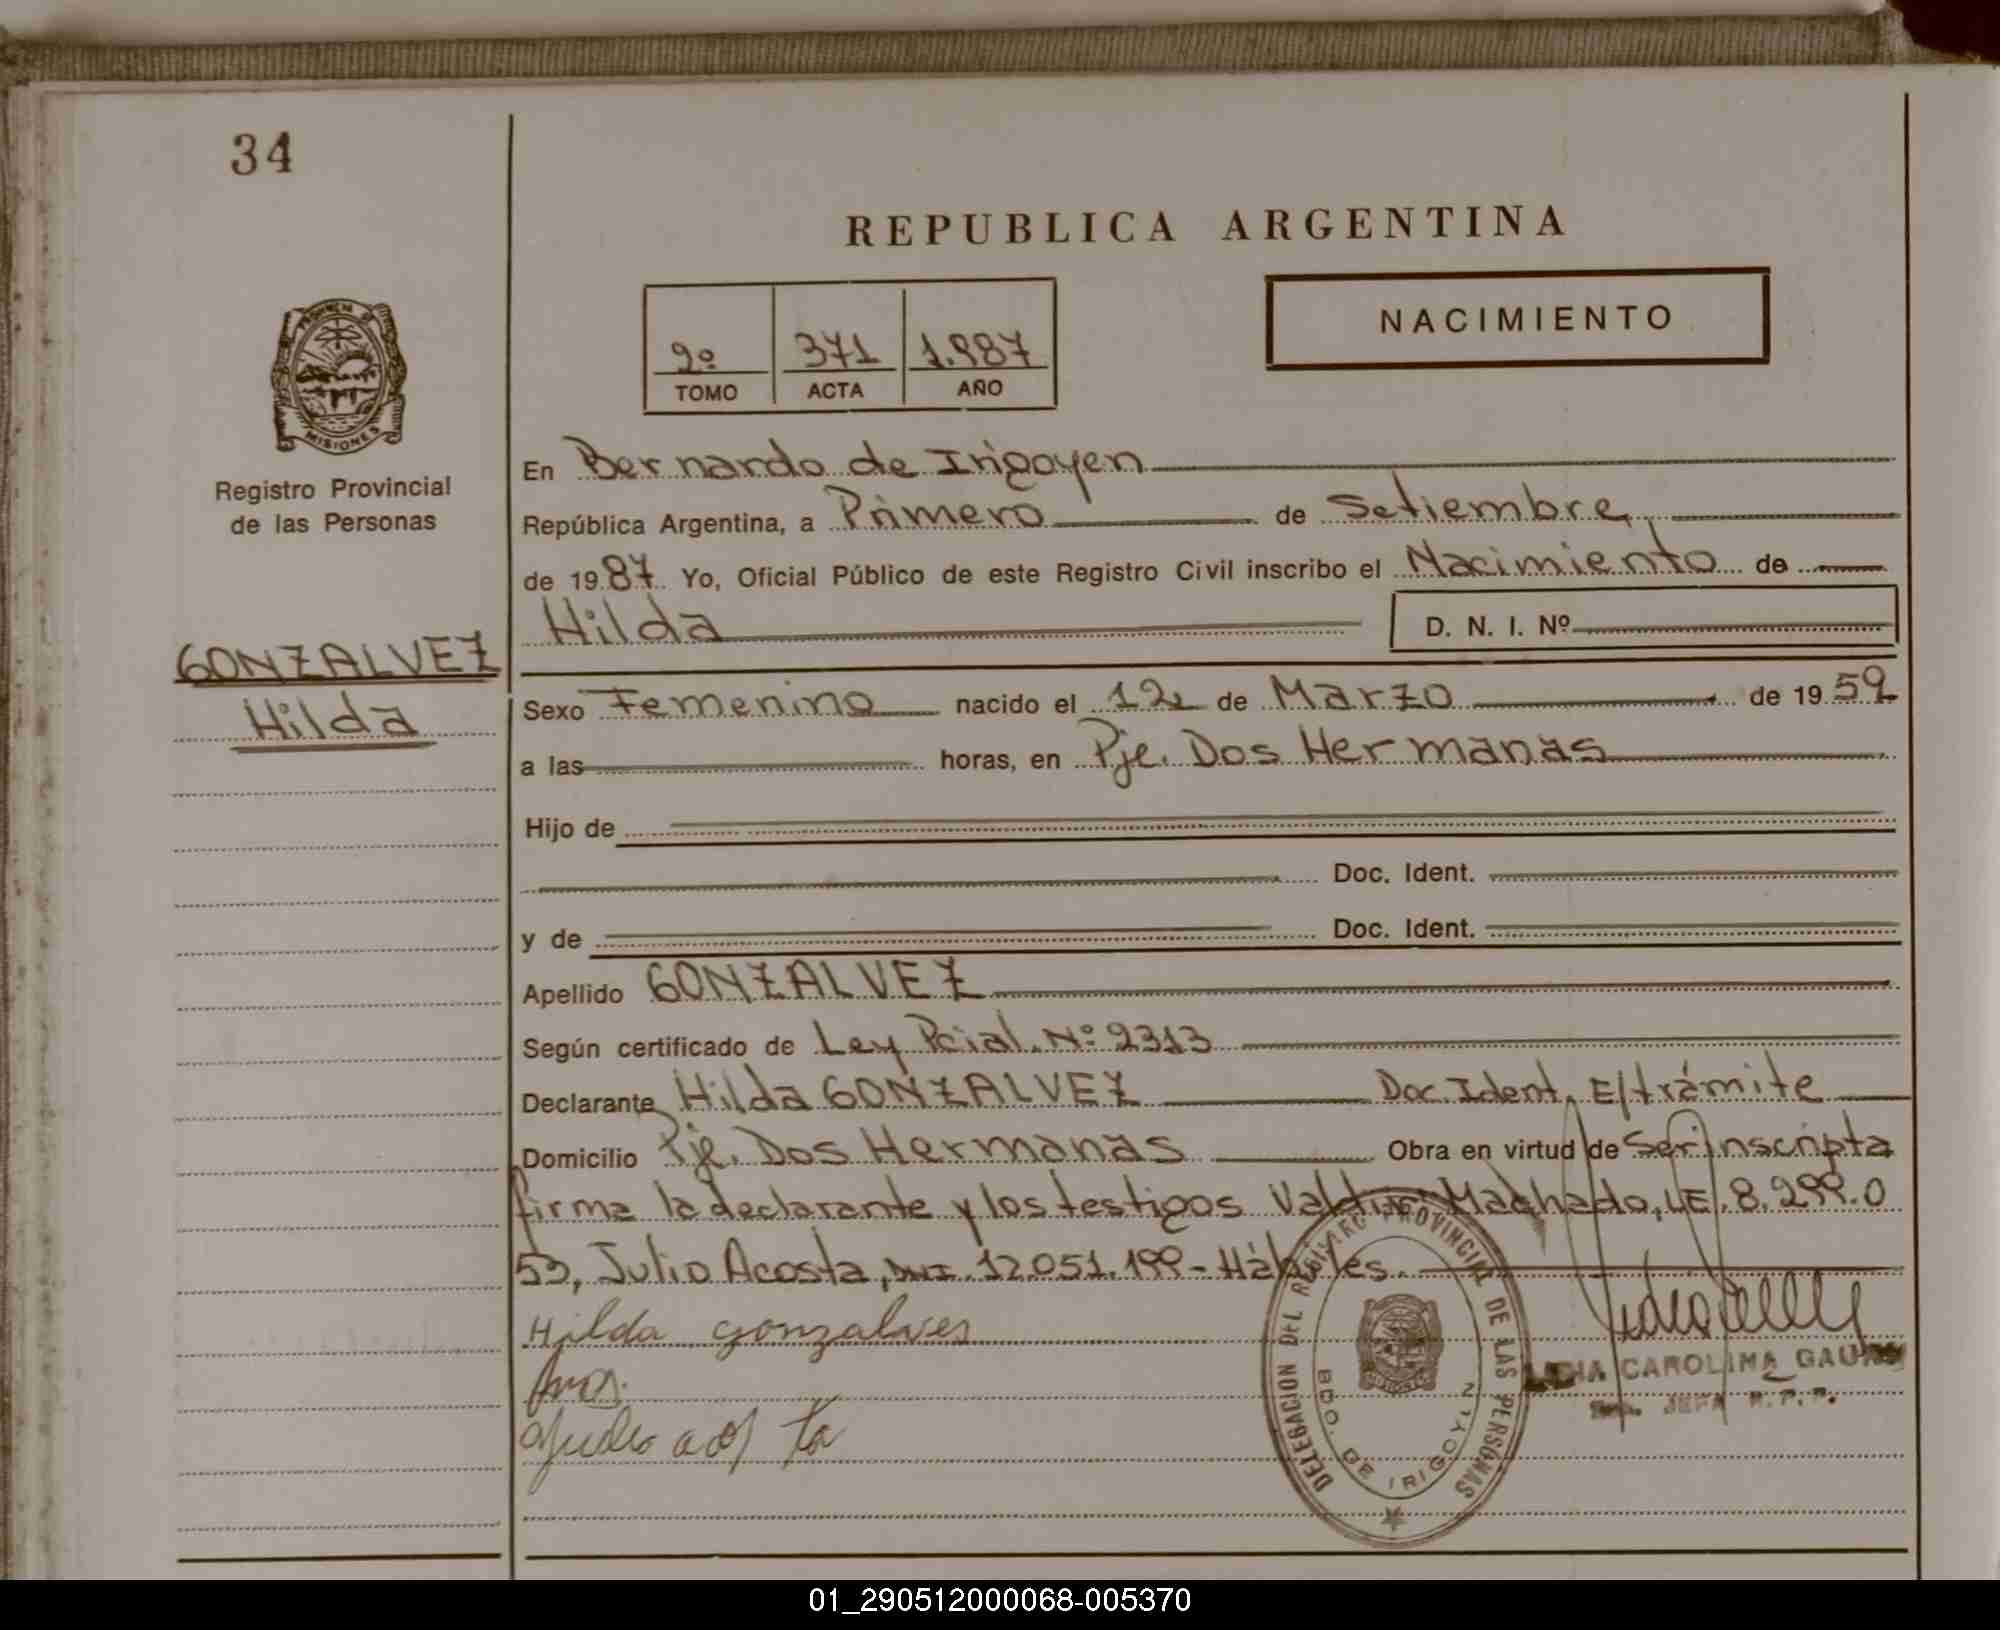 34
REPUBLICA ARGENTINA
NACIMIENTO
2º 371 1.987
TOMO ACTA AÑO
PROVINCIA DE
MISIONES
Registro Provincial
de las Personas
GONZALVEZ
Hilda
En Bernardo de Irigoyen
República Argentina, a Primero de Setiembre,
de 1987 Yo, Oficial Público de este Registro Civil inscribo el Nacimiento de
Hilda D. N. I. Nº
Sexo Femenino nacido el 12 de Marzo de 1959
a las horas, en Pje. Dos Hermanas
Hijo de
Doc. Ident.
y de Doc. Ident.
Apellido GONZALVEZ
Según certificado de Ley Pcial. Nº 2313
Declarante Hilda GONZALVEZ Doc. Ident. E/trámite
Domicilio Pje. Dos Hermanas Obra en virtud de Ser inscripta
firma la declarante y los testigos Machado, LE. 8.299.0
53, Julio Acosta, DNI. 12.051.199 - Hábiles.
Hilda gonzalves
Julio acosta
DELEGACION DEL REGISTRO PROVINCIAL DE LAS PERSONAS
BDO. DE IRIGOYEN
CAROLINA
JEFA R.P.P.
01_290512000068-005370